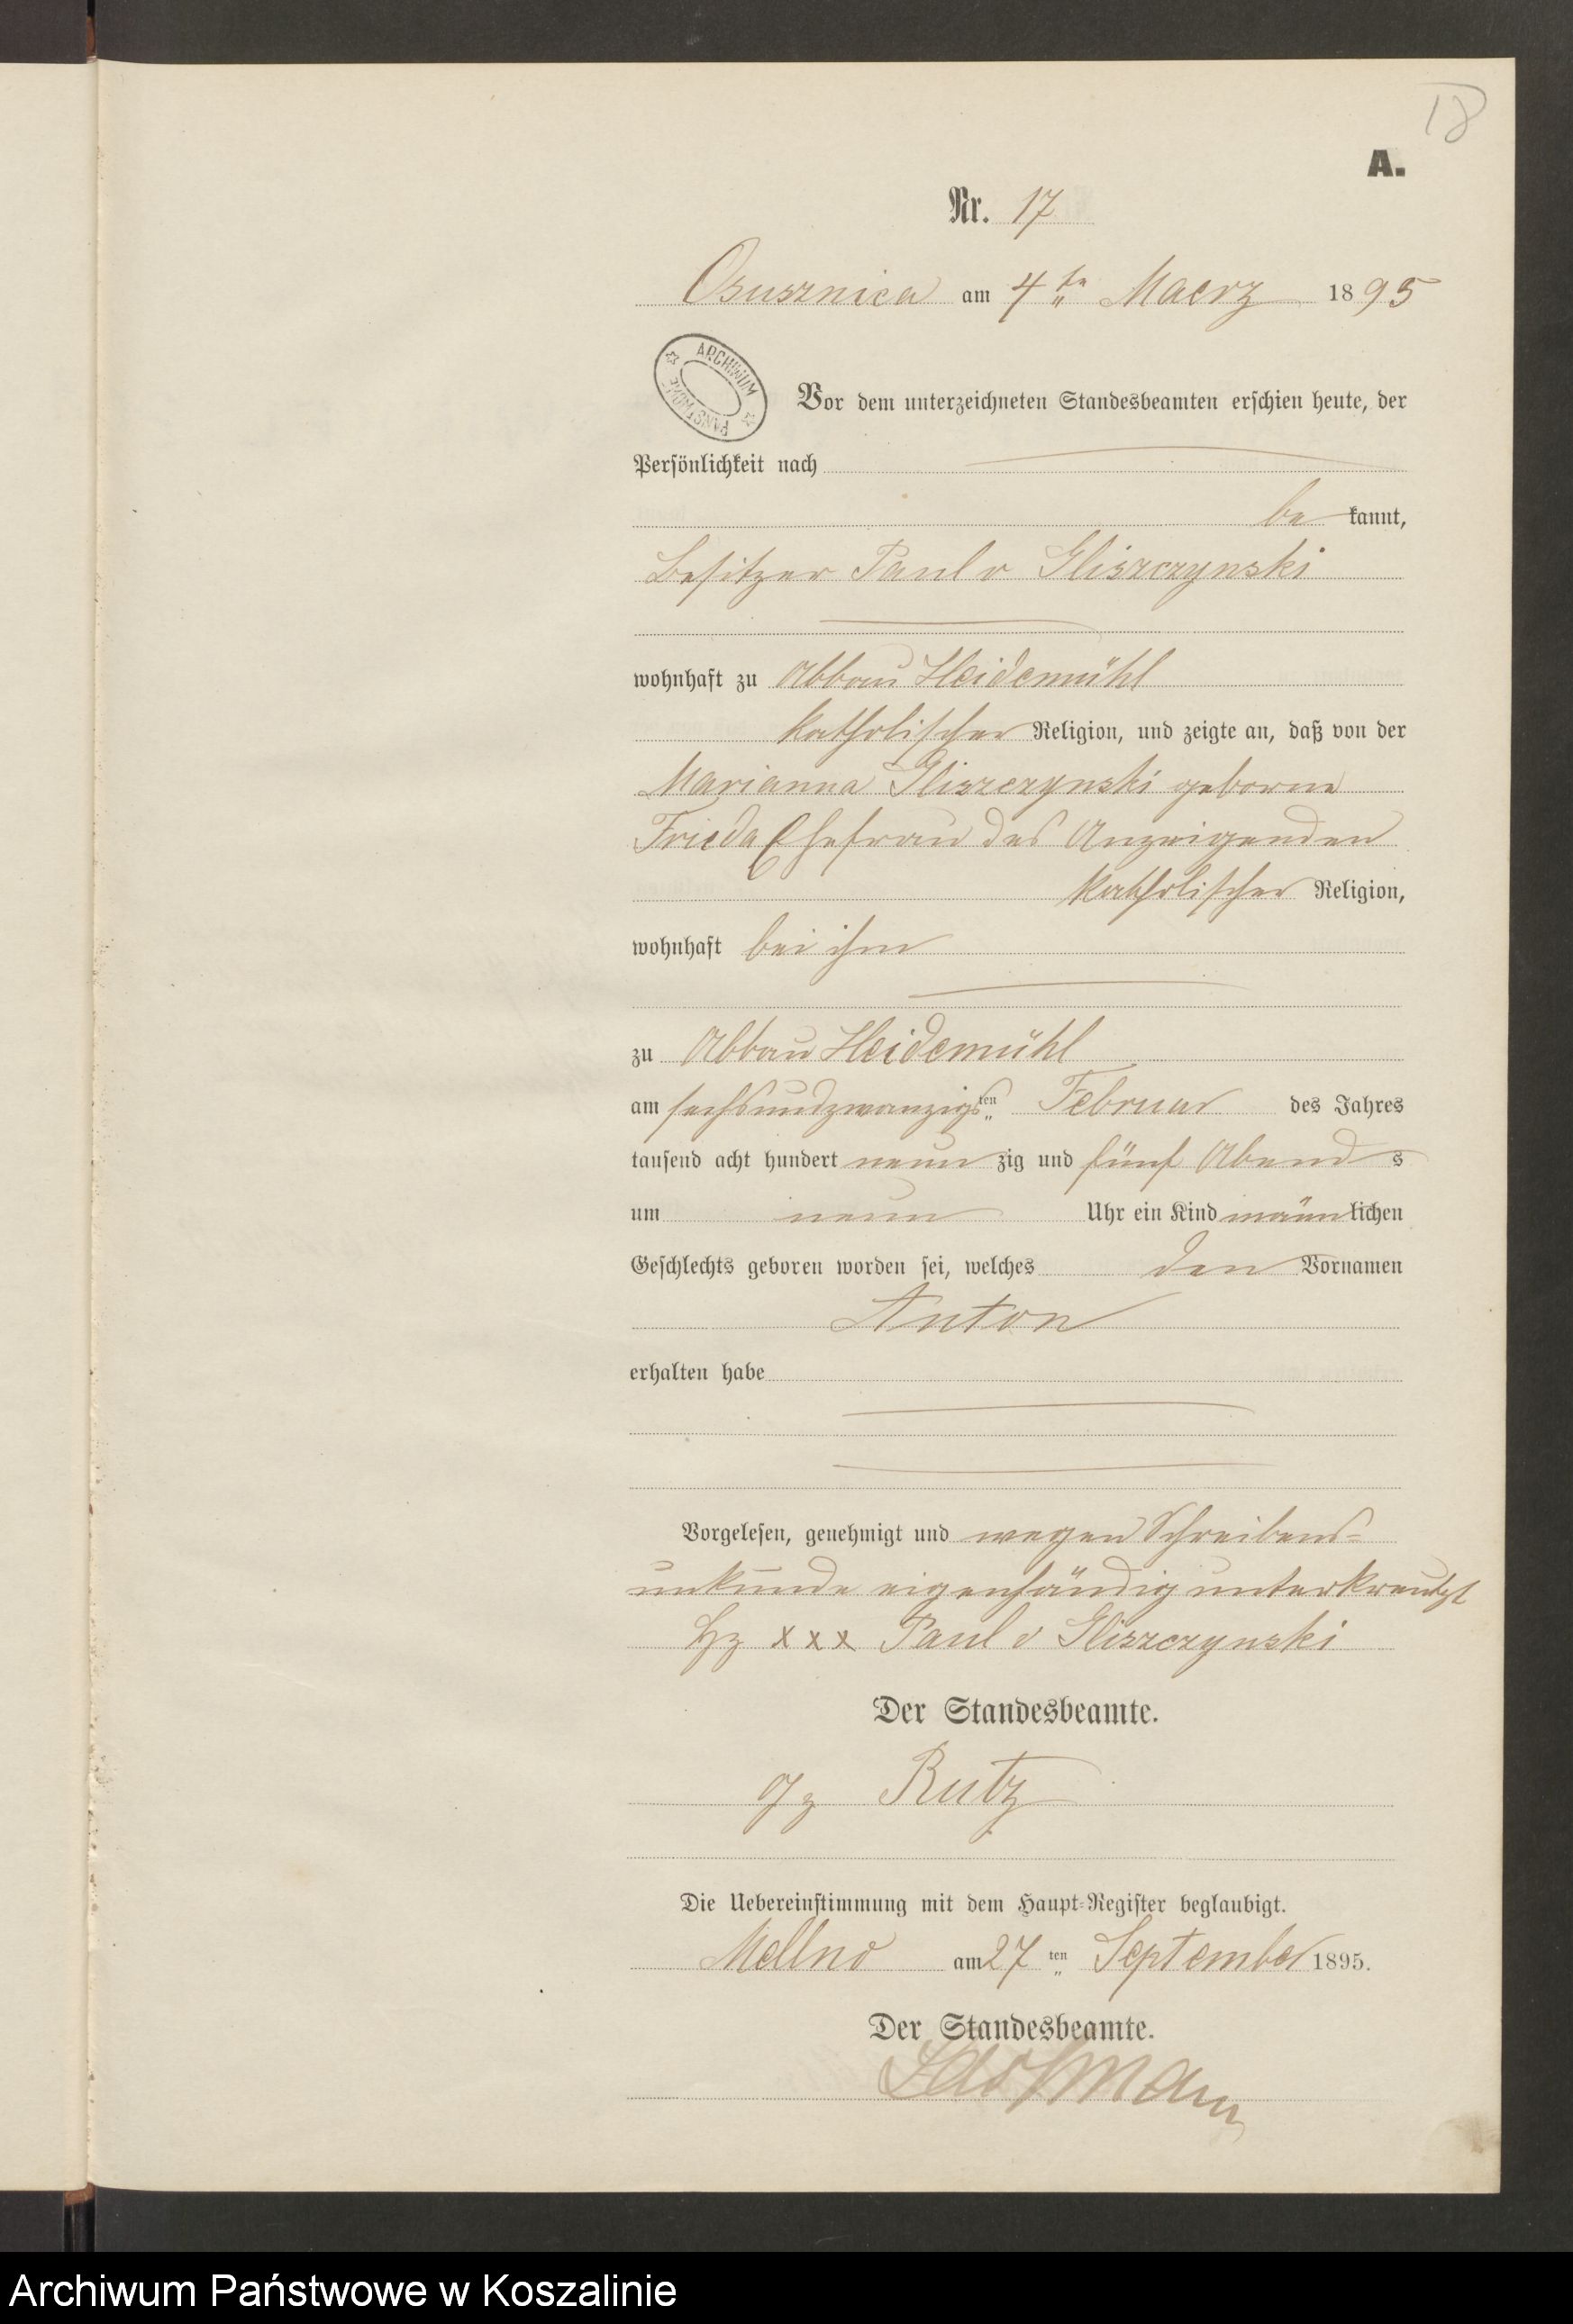 18
A.
Nr. 17
Osusznica am 4ten Maerz 1895
ARCHIWUM PAŃSTWOWE
Vor dem unterzeichneten Standesbeamten erschien heute, der
Persönlichkeit nach
be kannt,
Besitzer Paul v Gliszczynski
wohnhaft zu Abbau Heidemühl
katholischer Religion, und zeigte an, daß von der
Marianna Gliszczynski geborne
Frieda Ehefrau des Anzeigenden
katholischer Religion,
wohnhaft bei ihm
zu Abbau Heidemühl
am sechsundzwanzigsten Februar des Jahres
tausend acht hundert neun zig und fünf Abend s
um neun Uhr ein Kind männlichen
Geschlechts geboren worden sei, welches den Vornamen
Anton
erhalten habe
Vorgelesen, genehmigt und wegen Schreibens-
unkunde eigenhändig unterkreutzt
Hz xxx Paul v Gliszczynski
Der Standesbeamte.
gz Rutz
Die Uebereinstimmung mit dem Haupt-Register beglaubigt.
Mellno am 27ten September 1895.
Der Standesbeamte.
Archiwum Państwowe w Koszalinie